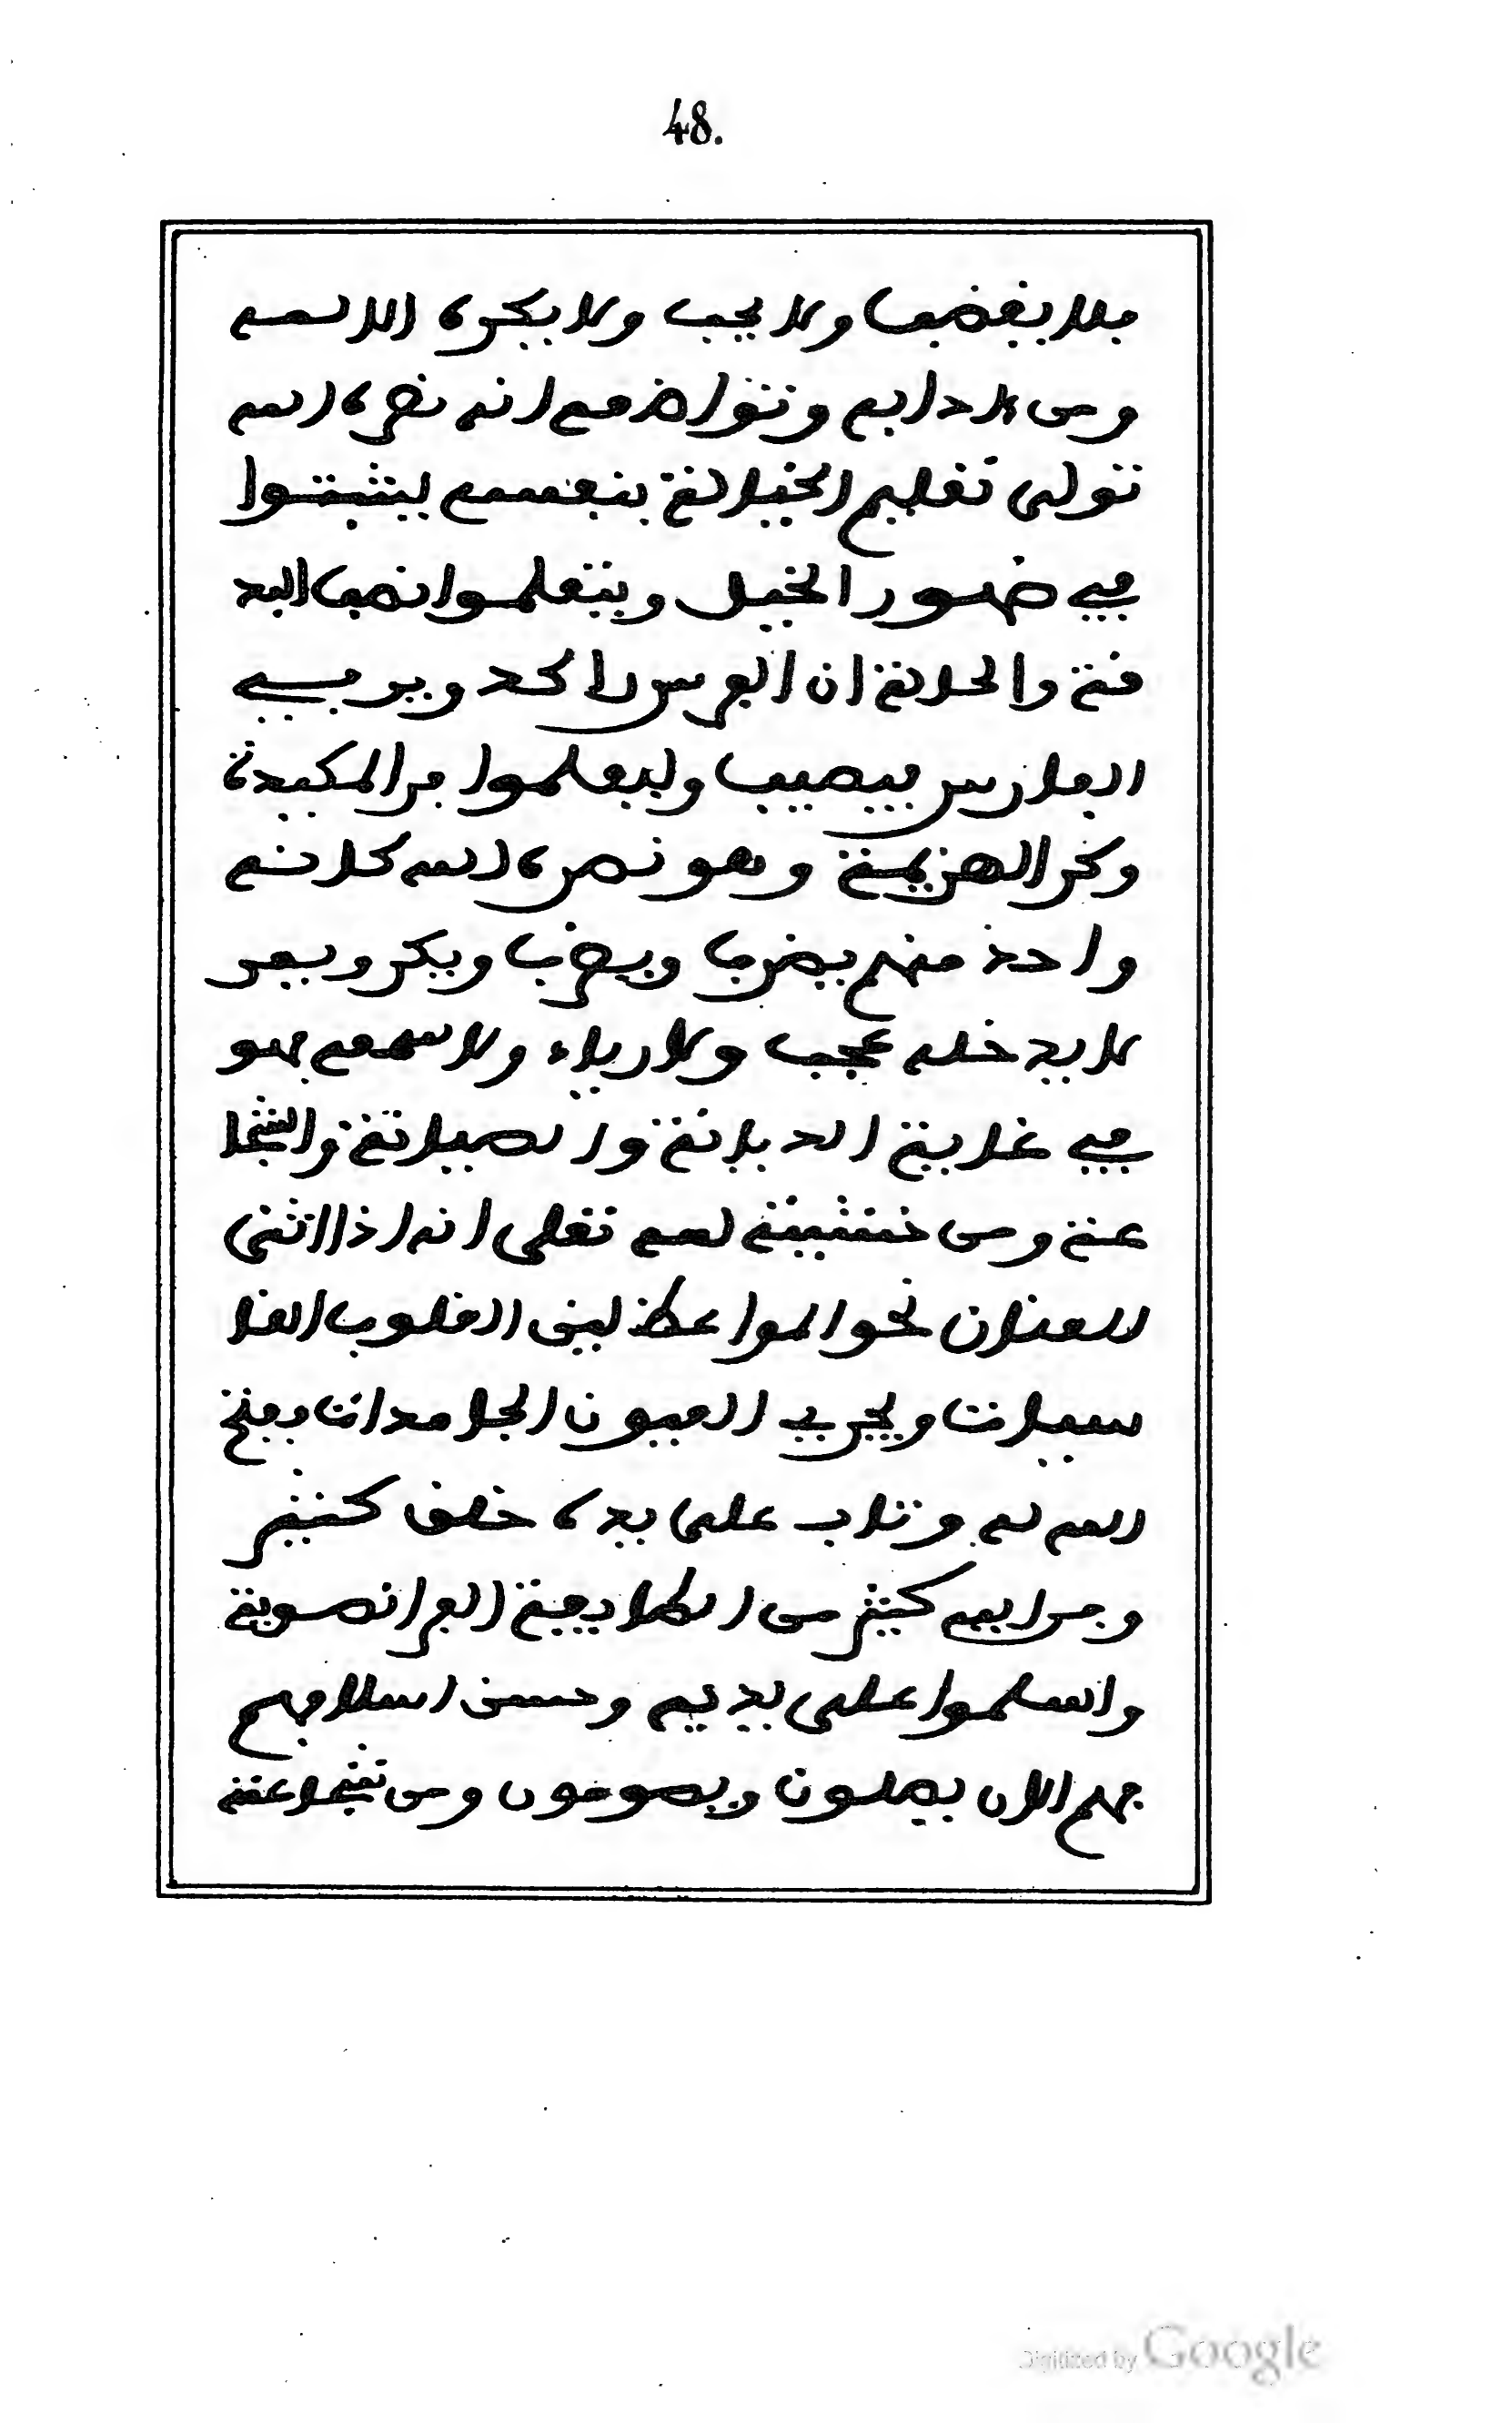 48.
فلا يغضب ولا يحب ولا يكره الا لله
ومن ءادابه وتواضعه انه نصره الله
تولى تعليم الخيالة بنفسه ليثبتوا
في ضهور الخيل ويتعلموا نصب البد
فة والحلة ان الفرس لاحد ويرمي
الفارس فيصيب وليعلموا فر المكيدة
وكر الهزيمة وهو نصره الله كانه
واحد منهم يضرب ويضرب ويكر ويفر
لا يدخله عجب ولا رياء ولا سمعة فهو
في غاية الديانة والصيانة والشجا
عة ومن خشيته لله تعلى انه اذا اثنى
العنان نحو المواعظ لين القلوب القا
سيات ويجري العيون الجامدات ويفتح
الله له وتاب على يده خلق كثير
وجرا اليه كثير من الطايفة الفرانصوية
واسلموا على يديه وحسن اسلامهم
فهم الان يصلون ويصومون ومن شجاعته
Digitized by Google